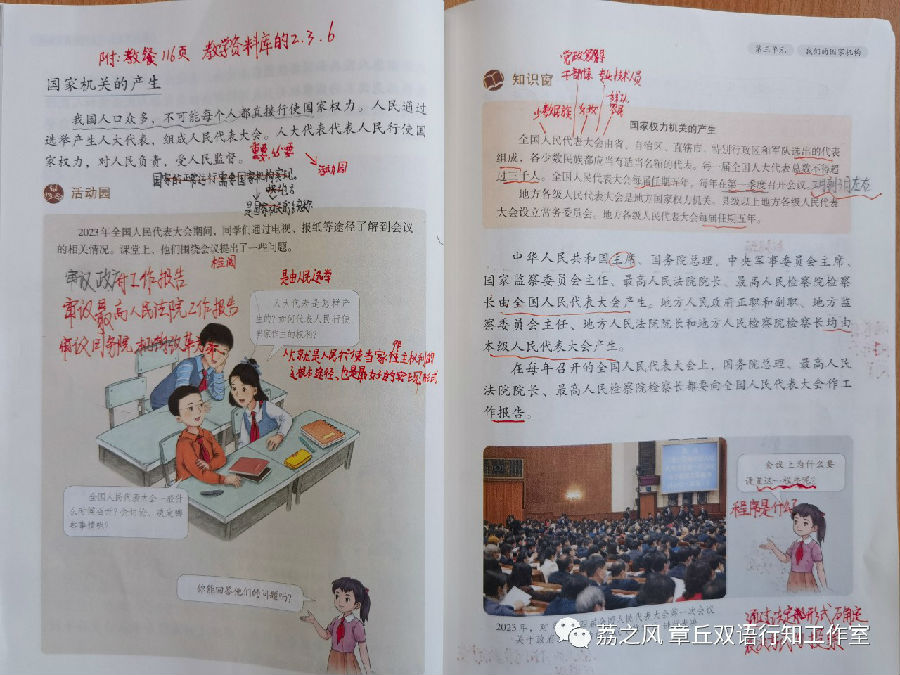 附：教餐116页 教学资料库的2.3.6
国家机关的产生
我国人口众多，不可能每个人都直接行使国家权力。人民通过
选举产生人大代表，组成人民代表大会。人大代表代表人民行使国
家权力，对人民负责，受人民监督。
重要 必要
活动园
活动园
2023年全国人民代表大会期间，同学们通过电视、报纸等途径了解到会议
的相关情况。课堂上，他们围绕会议提出了一些问题。
审议政府工作报告
审议最高人民法院工作报告
是由人民选举
人大代表是怎样产
生的？如何代表人民行使
当家作主的权利？
全国人民代表大会一般什
么时候召开？会讨论、决定哪
些事情呢？
你能回答他们的问题吗？
第三单元 我们的国家机构
知识窗
少数民族 妇女
国家权力机关的产生
全国人民代表大会由省、自治区、直辖市、特别行政区和军队选出的代表
组成。各少数民族都应当有适当名额的代表。每一届全国人大代表总数不得超
过三千人。全国人民代表大会每届任期五年，每年在第一季度召开会议。
地方各级人民代表大会是地方国家权力机关。县级以上地方各级人民代表
大会设立常务委员会。地方各级人民代表大会每届任期五年。
中华人民共和国主席、国务院总理、中央军事委员会主席、
国家监察委员会主任、最高人民法院院长、最高人民检察院检察
长由全国人民代表大会产生。地方人民政府正职和副职、地方监
察委员会主任、地方人民法院院长和地方人民检察院检察长均由
本级人民代表大会产生。
在每年召开的全国人民代表大会上，国务院总理、最高人民
法院院长、最高人民检察院检察长都要向全国人民代表大会作工
作报告。
会议上为什么要
设置这一程序呢？
程序是什么
2023年，
全国人民代表大会第一次会议
荔之风 章丘双语行知工作室